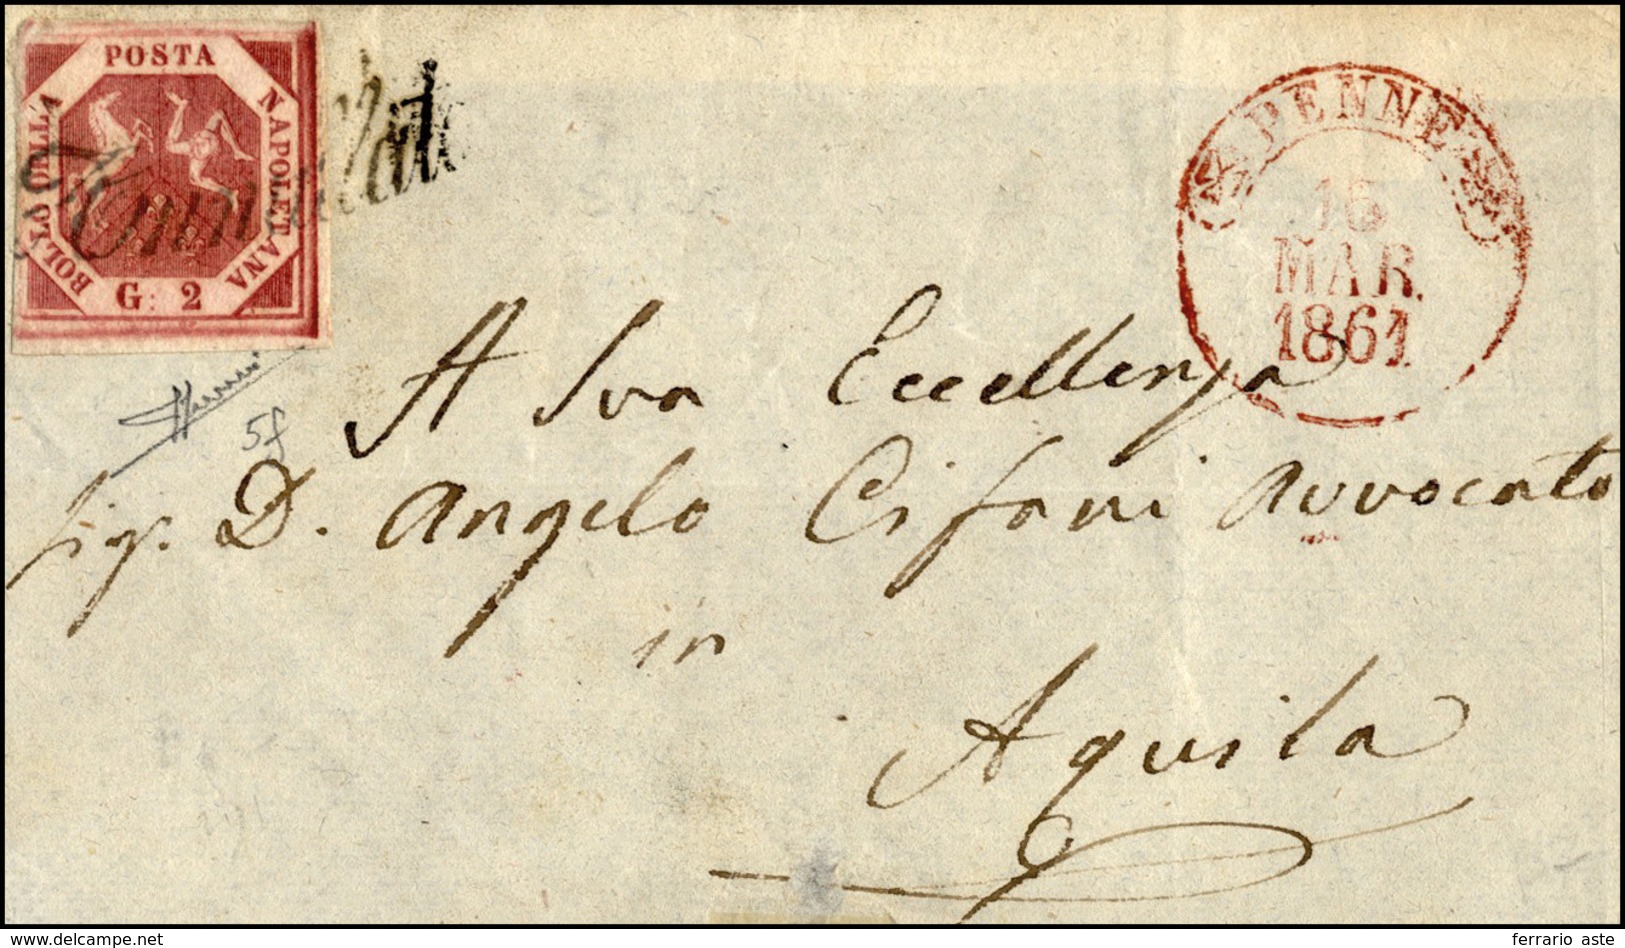 POSTA
NAPOLETANA
BOLLO DELLA
G: 2
Annullato
PENNE
16
MAR.
1861
5f
A Sua Eccellenza
Sig. D. Angelo Cifani Avvocato
in
Aquila
www.delcampe.net
ferrario aste